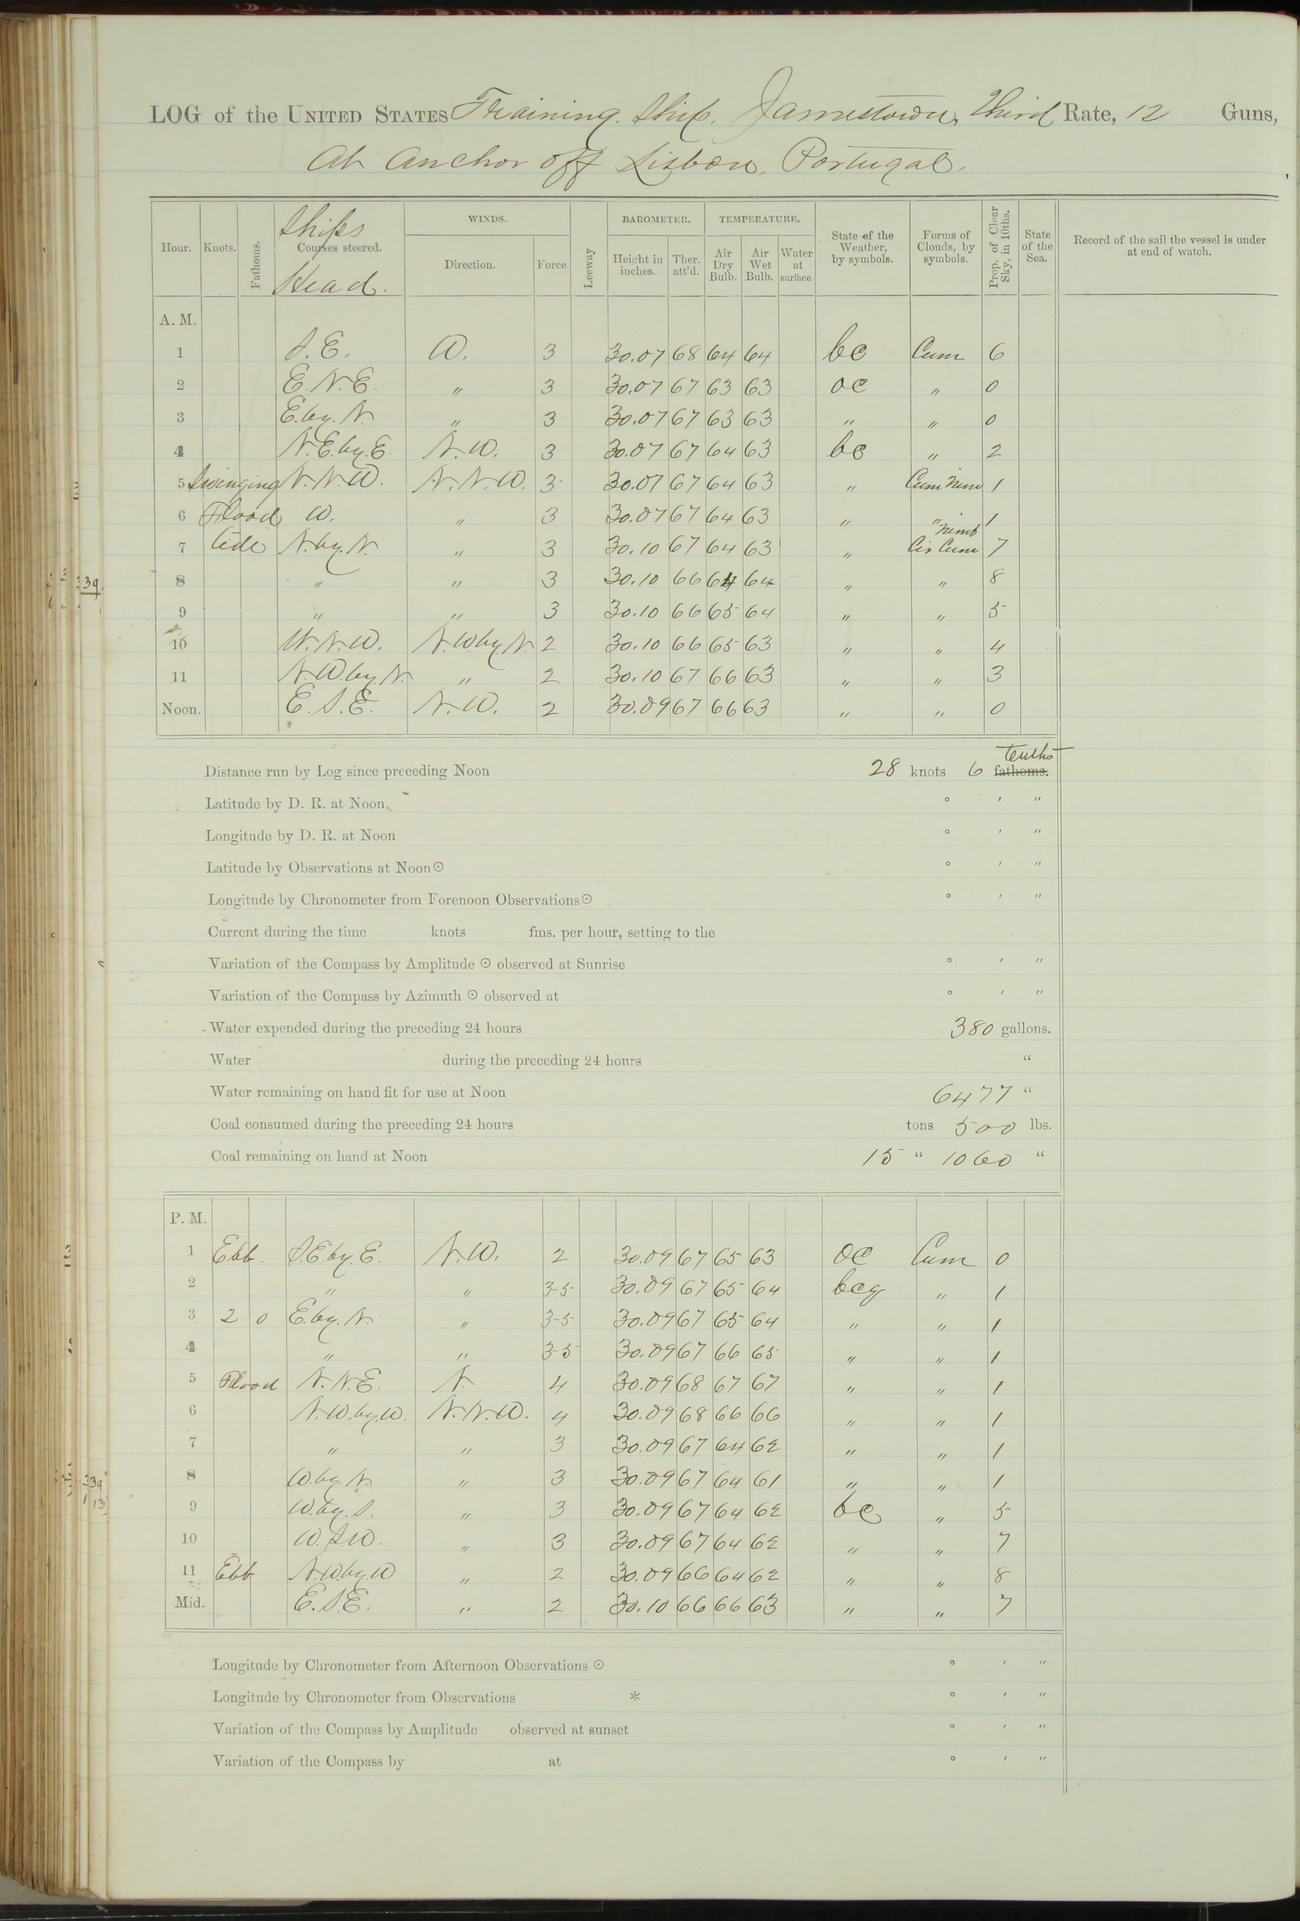 LOG of the UNITED STATES Training Ship Jamestown, Third Rate, 12 Guns,
At anchor off Lisbon, Portugal.
Hour. Knots. Fathoms. Ships Courses steered. Head. WINDS. Direction. Force. Leeway BAROMETER. Height in inches. Ther. att'd. TEMPERATURE. Air Dry Bulb. Air Wet Bulb. Water at surface. State of the Weather, by symbols. Forms of Clouds, by symbols. Prop. of Clear Sky, in 10ths. State of the Sea. Record of the sail the vessel is under at end of watch.
A. M.
1 S.E. W. 3 30.07 68 64 64 bc Cum 6
2 E.N.E. " 3 30.07 67 63 63 oc " 0
3 E.by.N. " 3 30.07 67 63 63 " " 0
4 N.E.by.E. N.W. 3 30.07 67 64 63 bc " 2
5 Swinging N.N.W. N.N.W. 3 30.07 67 64 63 " Cum Nim 1
6 Flood W. " 3 30.07 67 64 63 " " 1
7 tide N.by.N. " 3 30.10 67 64 63 " Nimb Cir Cum 7
8 " " 3 30.10 66 64 64 " " 8
9 " " 3 30.10 66 65 64 " " 5
10 W.N.W. N.W.by N. 2 30.10 66 65 63 " " 4
11 N.W.by.N. " 2 30.10 67 66 63 " " 3
Noon. E.S.E. N.W. 2 30.09 67 66 63 " " 0
Distance run by Log since preceding Noon 28 knots 6 tenths fathoms.
Latitude by D. R. at Noon. ° ' "
Longitude by D. R. at Noon ° ' "
Latitude by Observations at Noon ☉ ° ' "
Longitude by Chronometer from Forenoon Observations ☉ ° ' "
Current during the time knots fms. per hour, setting to the
Variation of the Compass by Amplitude ☉ observed at Sunrise ° ' "
Variation of the Compass by Azimuth ☉ observed at ° ' "
Water expended during the preceding 24 hours 380 gallons.
Water during the preceding 24 hours "
Water remaining on hand fit for use at Noon 6477 "
Coal consumed during the preceding 24 hours tons 500 lbs.
Coal remaining on hand at Noon 15 " 1060 "
P. M.
1 Ebb. S.E.by.E. N.W. 2 30.09 67 65 63 oc Cum 0
2 " " 3-5 30.09 67 65 64 bcq " 1
3 2 0 E.by.N. " 3-5 30.09 67 65 64 " " 1
4 " " 3-5 30.09 67 66 65 " " 1
5 Flood N.N.E. N. 4 30.09 68 67 67 " " 1
6 N.W.by.W. N.N.W. 4 30.09 68 66 66 " " 1
7 " " 3 30.09 67 64 62 " " 1
8 W.by.N. " 3 30.09 67 64 61 " " 1
9 W.by.S. " 3 30.09 67 64 62 bc " 5
10 W.S.W. " 3 30.09 67 64 62 " " 7
11 Ebb N.W.by.W " 2 30.09 66 64 62 " " 8
Mid. E.S.E. " 2 30.10 66 66 63 " " 7
Longitude by Chronometer from Afternoon Observations ☉ ° ' "
Longitude by Chronometer from Observations * ° ' "
Variation of the Compass by Amplitude observed at sunset ° ' "
Variation of the Compass by at ° ' "